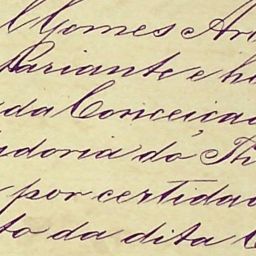 l Gomes Ar
Variante e h
da Conceicao
idoria do Th
por certidao
to da dita C